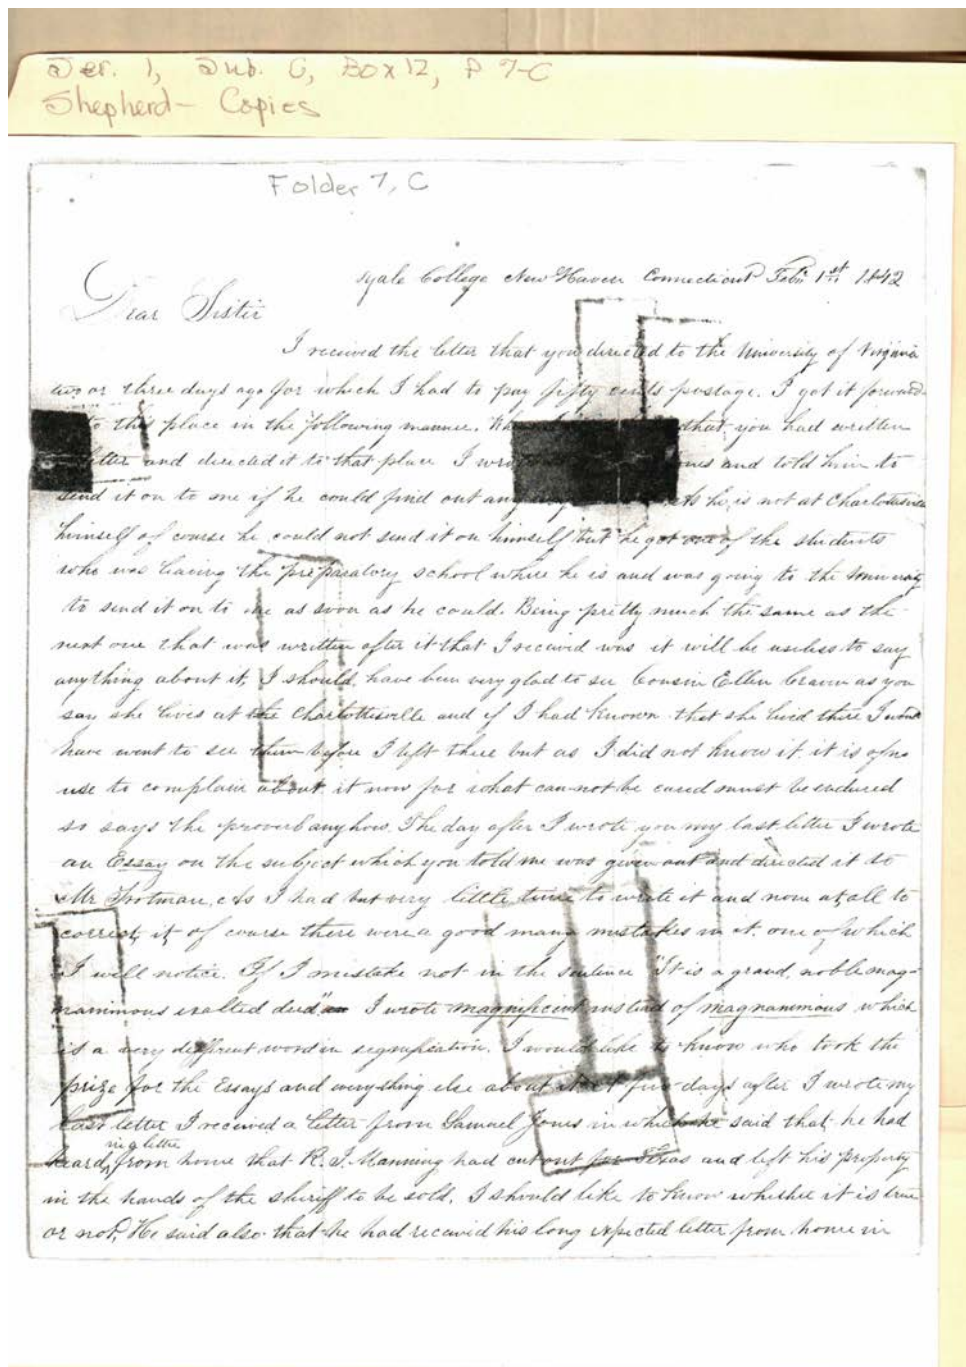 Ser. 1, Sub. C, Box 12, F 7-C
Shepherd - Copies
Folder 7, C
Yale College New Haven Connecticut Feb. 1st 1842
Dear Sister
I received the letter that you directed to the University of Virginia
two or three days ago for which I had to pay fifty cents postage. I got it forward
to this place in the following manner. that you had written
letter and directed it to that place I and told him to
send it on to me if he could find out any As he is not at Charlottesville
himself of course he could not send it on himself but he got one of the students
who was leaving the preparatory school where he is and was going to the University
to send it on to me as soon as he could. Being pretty much the same as the
next one that was written after it that I received was it will be useless to say
anything about it, I should have been very glad to see Cousin Ellen Craven as you
say she lives at the Charlottesville and if I had known that she lived there I would
have went to see them before I left there but as I did not know it it is of no
use to complain about it now for what can not be cured must be endured
so says the proverb anyhow. The day after I wrote you my last letter I wrote
an Essay on the subject which you told me was given out and directed it to
Mr Trotman, As I had but very little time to write it and none at all to
correct it of course there were a good many mistakes in it. one of which
I will notice. If I mistake not in the sentence "It is a grand, noble mag-
nanimous exalted deed" I wrote magnificent instead of magnanimous which
is a very different word in signification. I would like to know who took the
prize for the Essays and everything else about it. A few days after I wrote my
last letter I received a letter from Samuel Jones in which he said that he had
in a letter
heard from home that R. J. Manning had cut out for Texas and left his property
in the hands of the sheriff to be sold. I should like to know whether it is true
or not. He said also that he had received his long expected letter from home in